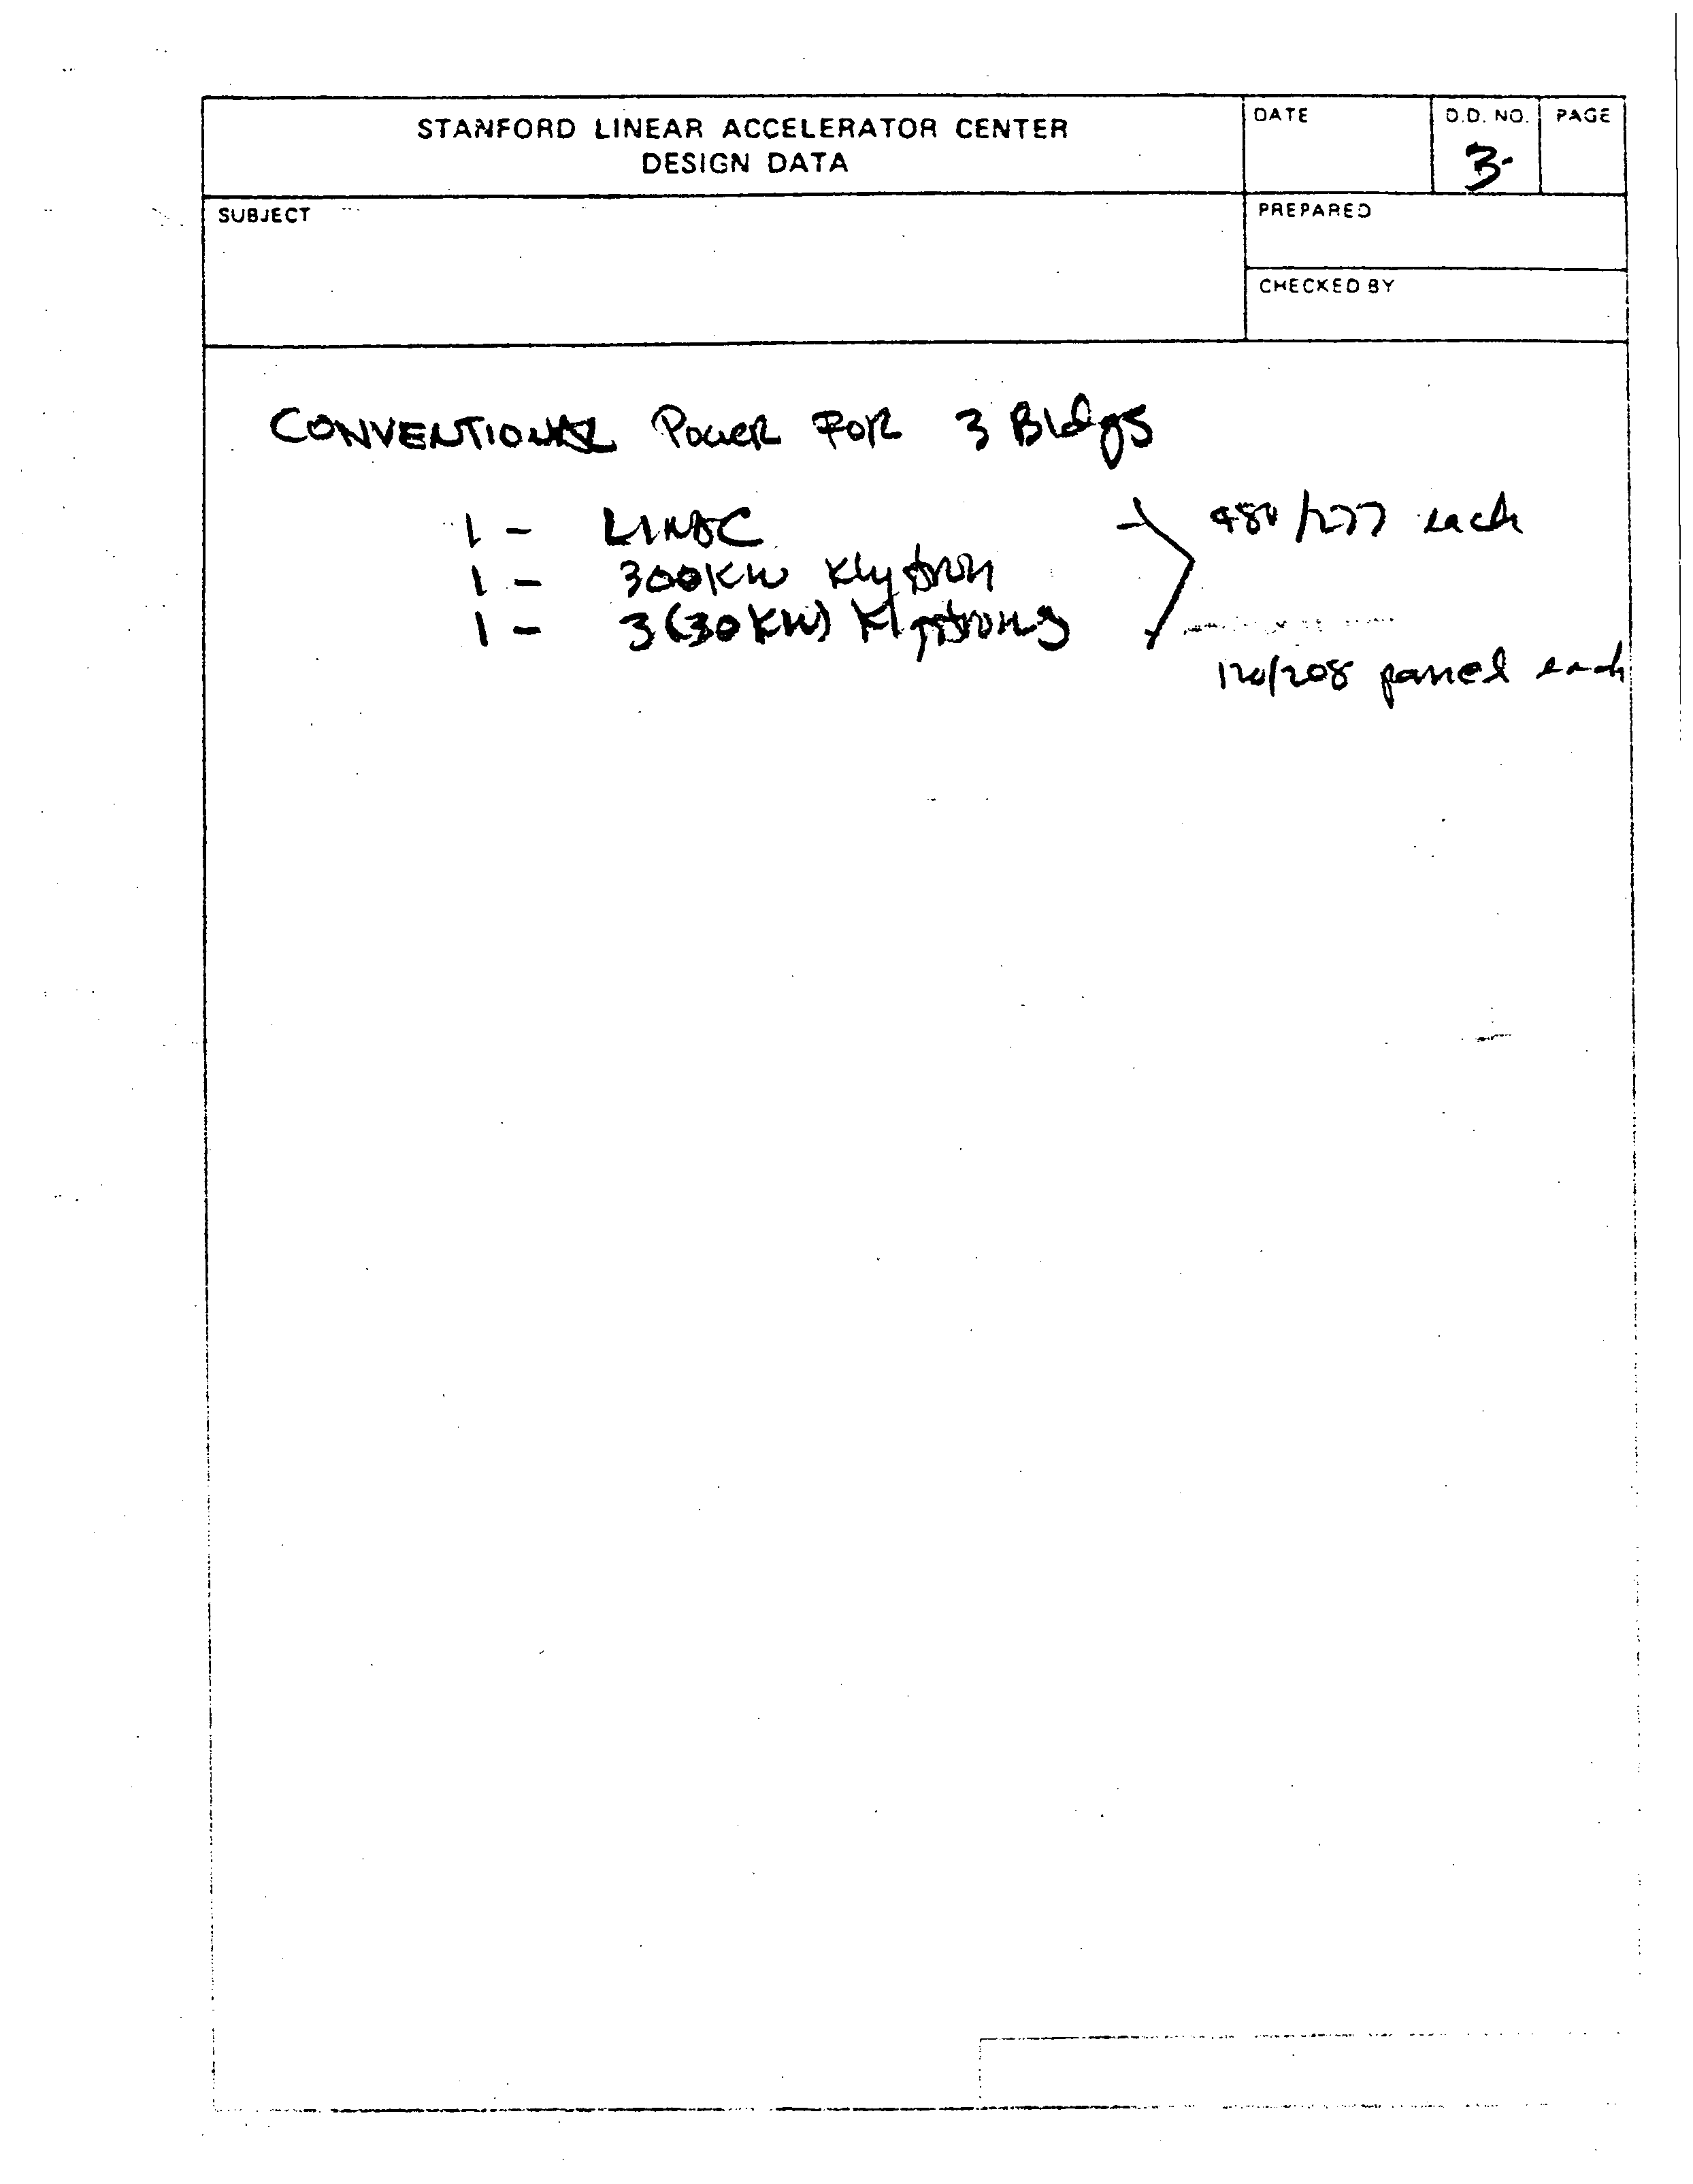 STANFORD LINEAR ACCELERATOR CENTER
DESIGN DATA
DATE
D.D. NO.
3-
PAGE
SUBJECT
PREPARED
CHECKED BY
CONVENTIONAL POWER FOR 3 Bldgs
1 - LINAC 480/277 each
1 - 300KW Klystron
1 - 3(30KW) Klystrons
120/208 panel each